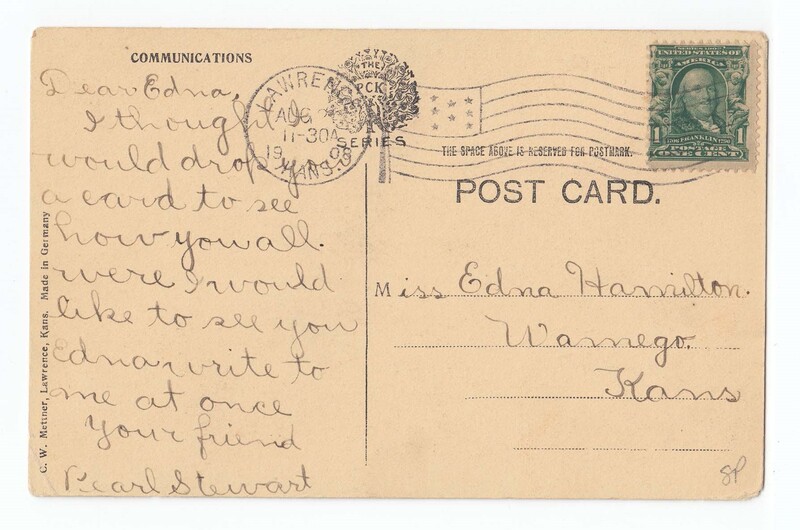 COMMUNICATIONS
Dear Edna,
I thought I
would drop you
a card to see
how you all.
were I would
like to see you
Edna write to
me at once
Your friend
Pearl Stewart
C. W. Mettner, Lawrence, Kans. Made in Germany
LAWRENCE
AUG
11-30A
19 08
KANS.
THE
PCK
SERIES
THE SPACE ABOVE IS RESERVED FOR POSTMARK.
POST CARD.
SERIES 1902
UNITED STATES OF
AMERICA
1
1706 FRANKLIN 1790
1
POSTAGE
ONE CENT
Miss Edna Hamilton.
Wamego.
Kans
SP